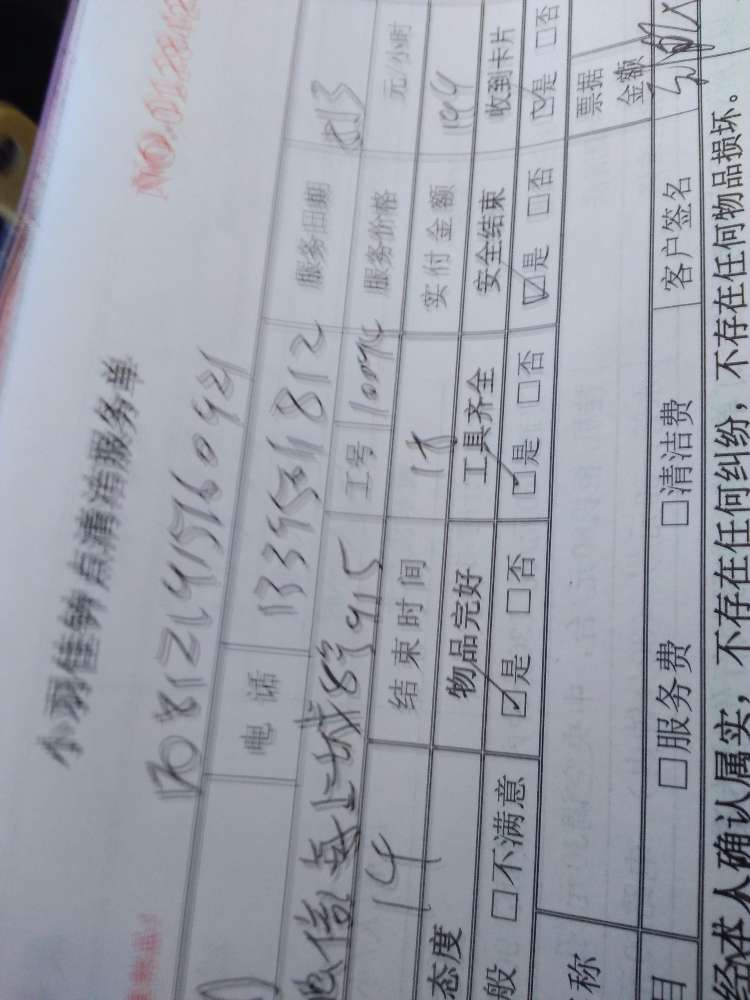 小羽佳钟点清洁服务单
NO.01284
17081214157160921
电话 13395011812 服务日期 8.13
海上城8号915 工号 10094 服务价格 元/小时
14 结束时间 18 实付金额 194
态度 物品完好 工具齐全 安全结束 收到卡片
般 □不满意 ☑是 □否 ☑是 □否 ☑是 □否 ☑是 □否
称 票据金额
目 □服务费 □清洁费 客户签名
经本人确认属实，不存在任何纠纷，不存在任何物品损坏。